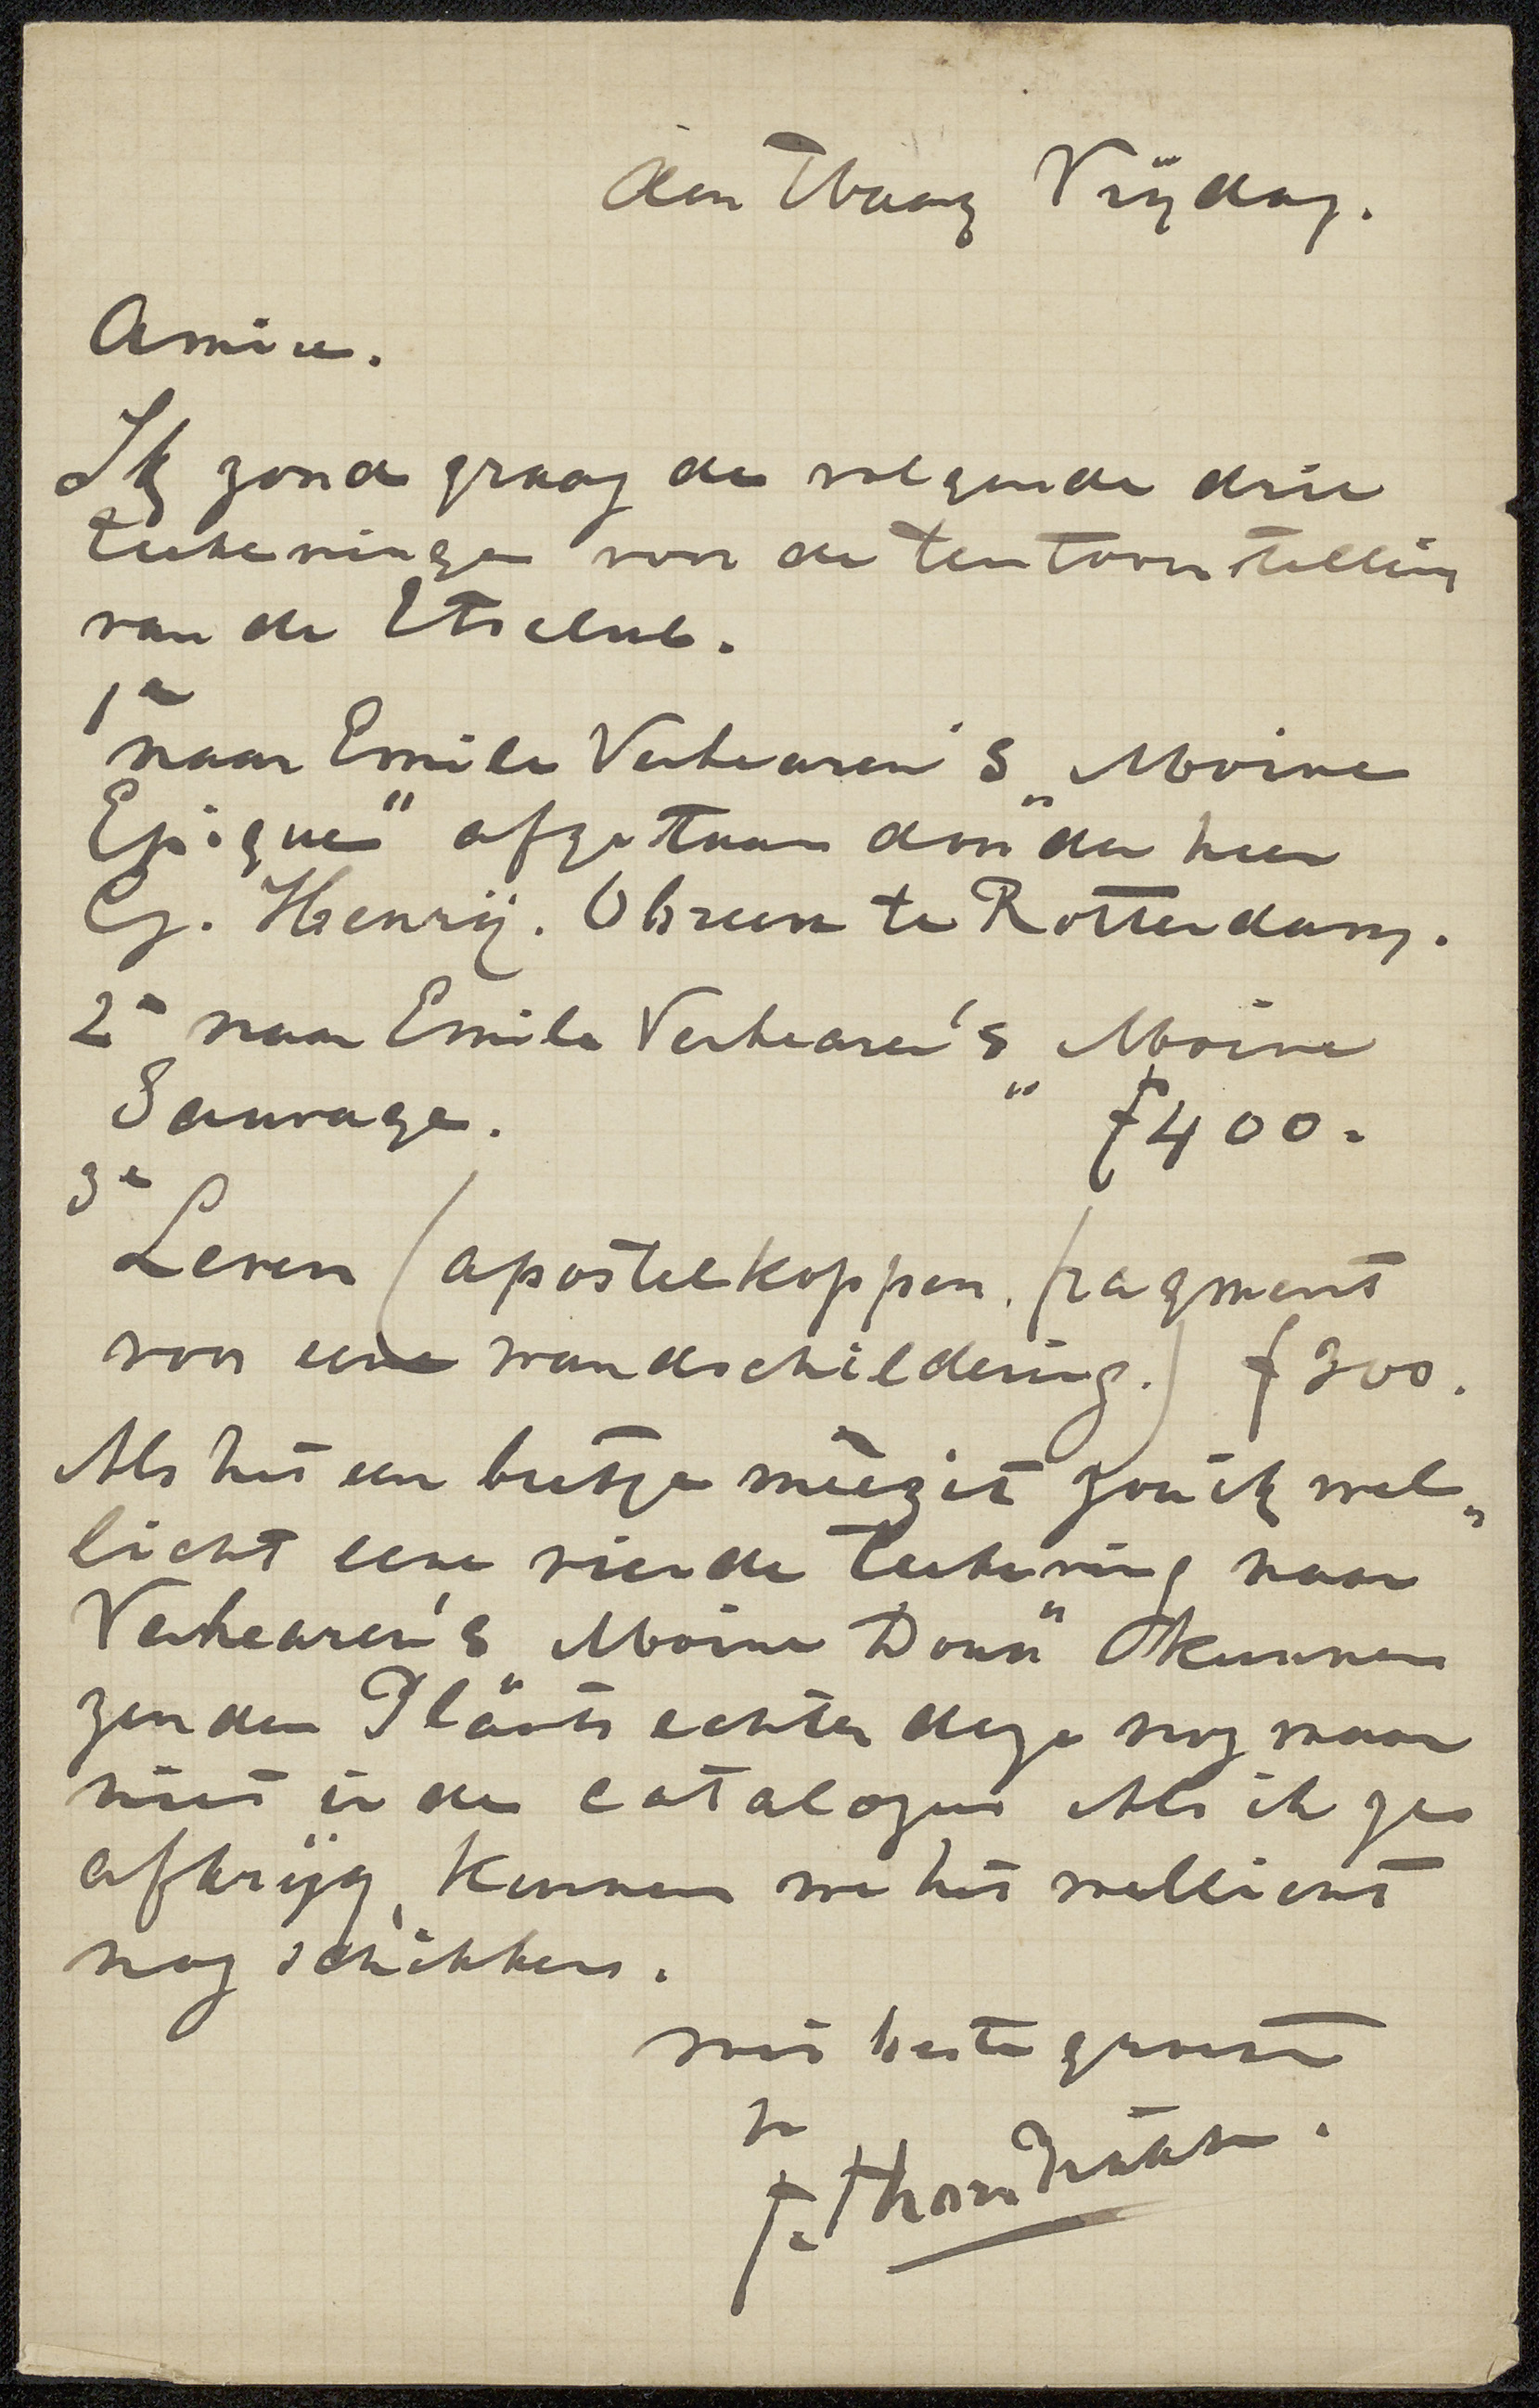 den Haag Vrijdag.
Amice.
Ik zond graag de volgende drie
teekeningen voor de tentoonstelling
van de Etsclub.
1e
naar Emile Verhearen's „Moine
Epique" afgestaan door den heer
Henrij. Obreen te Rotterdam.
2e naar Emile Verhearen's „Moine
Sauvage. " f400.
3e
Leven (apostelkoppen. fragment
voor eene wandschildering.) f300.
Als het een beetje meezit zou ik wel„
licht eene vierde teekening naar
Verhearen's Moine Doux" kunnen
zenden Plaats echter deze nog maar
niet in de catalogus Als ik ze
afkrijg, kunnen we het wellicht
nog schikken.
met beste groeten
J. Thorn Prikker.